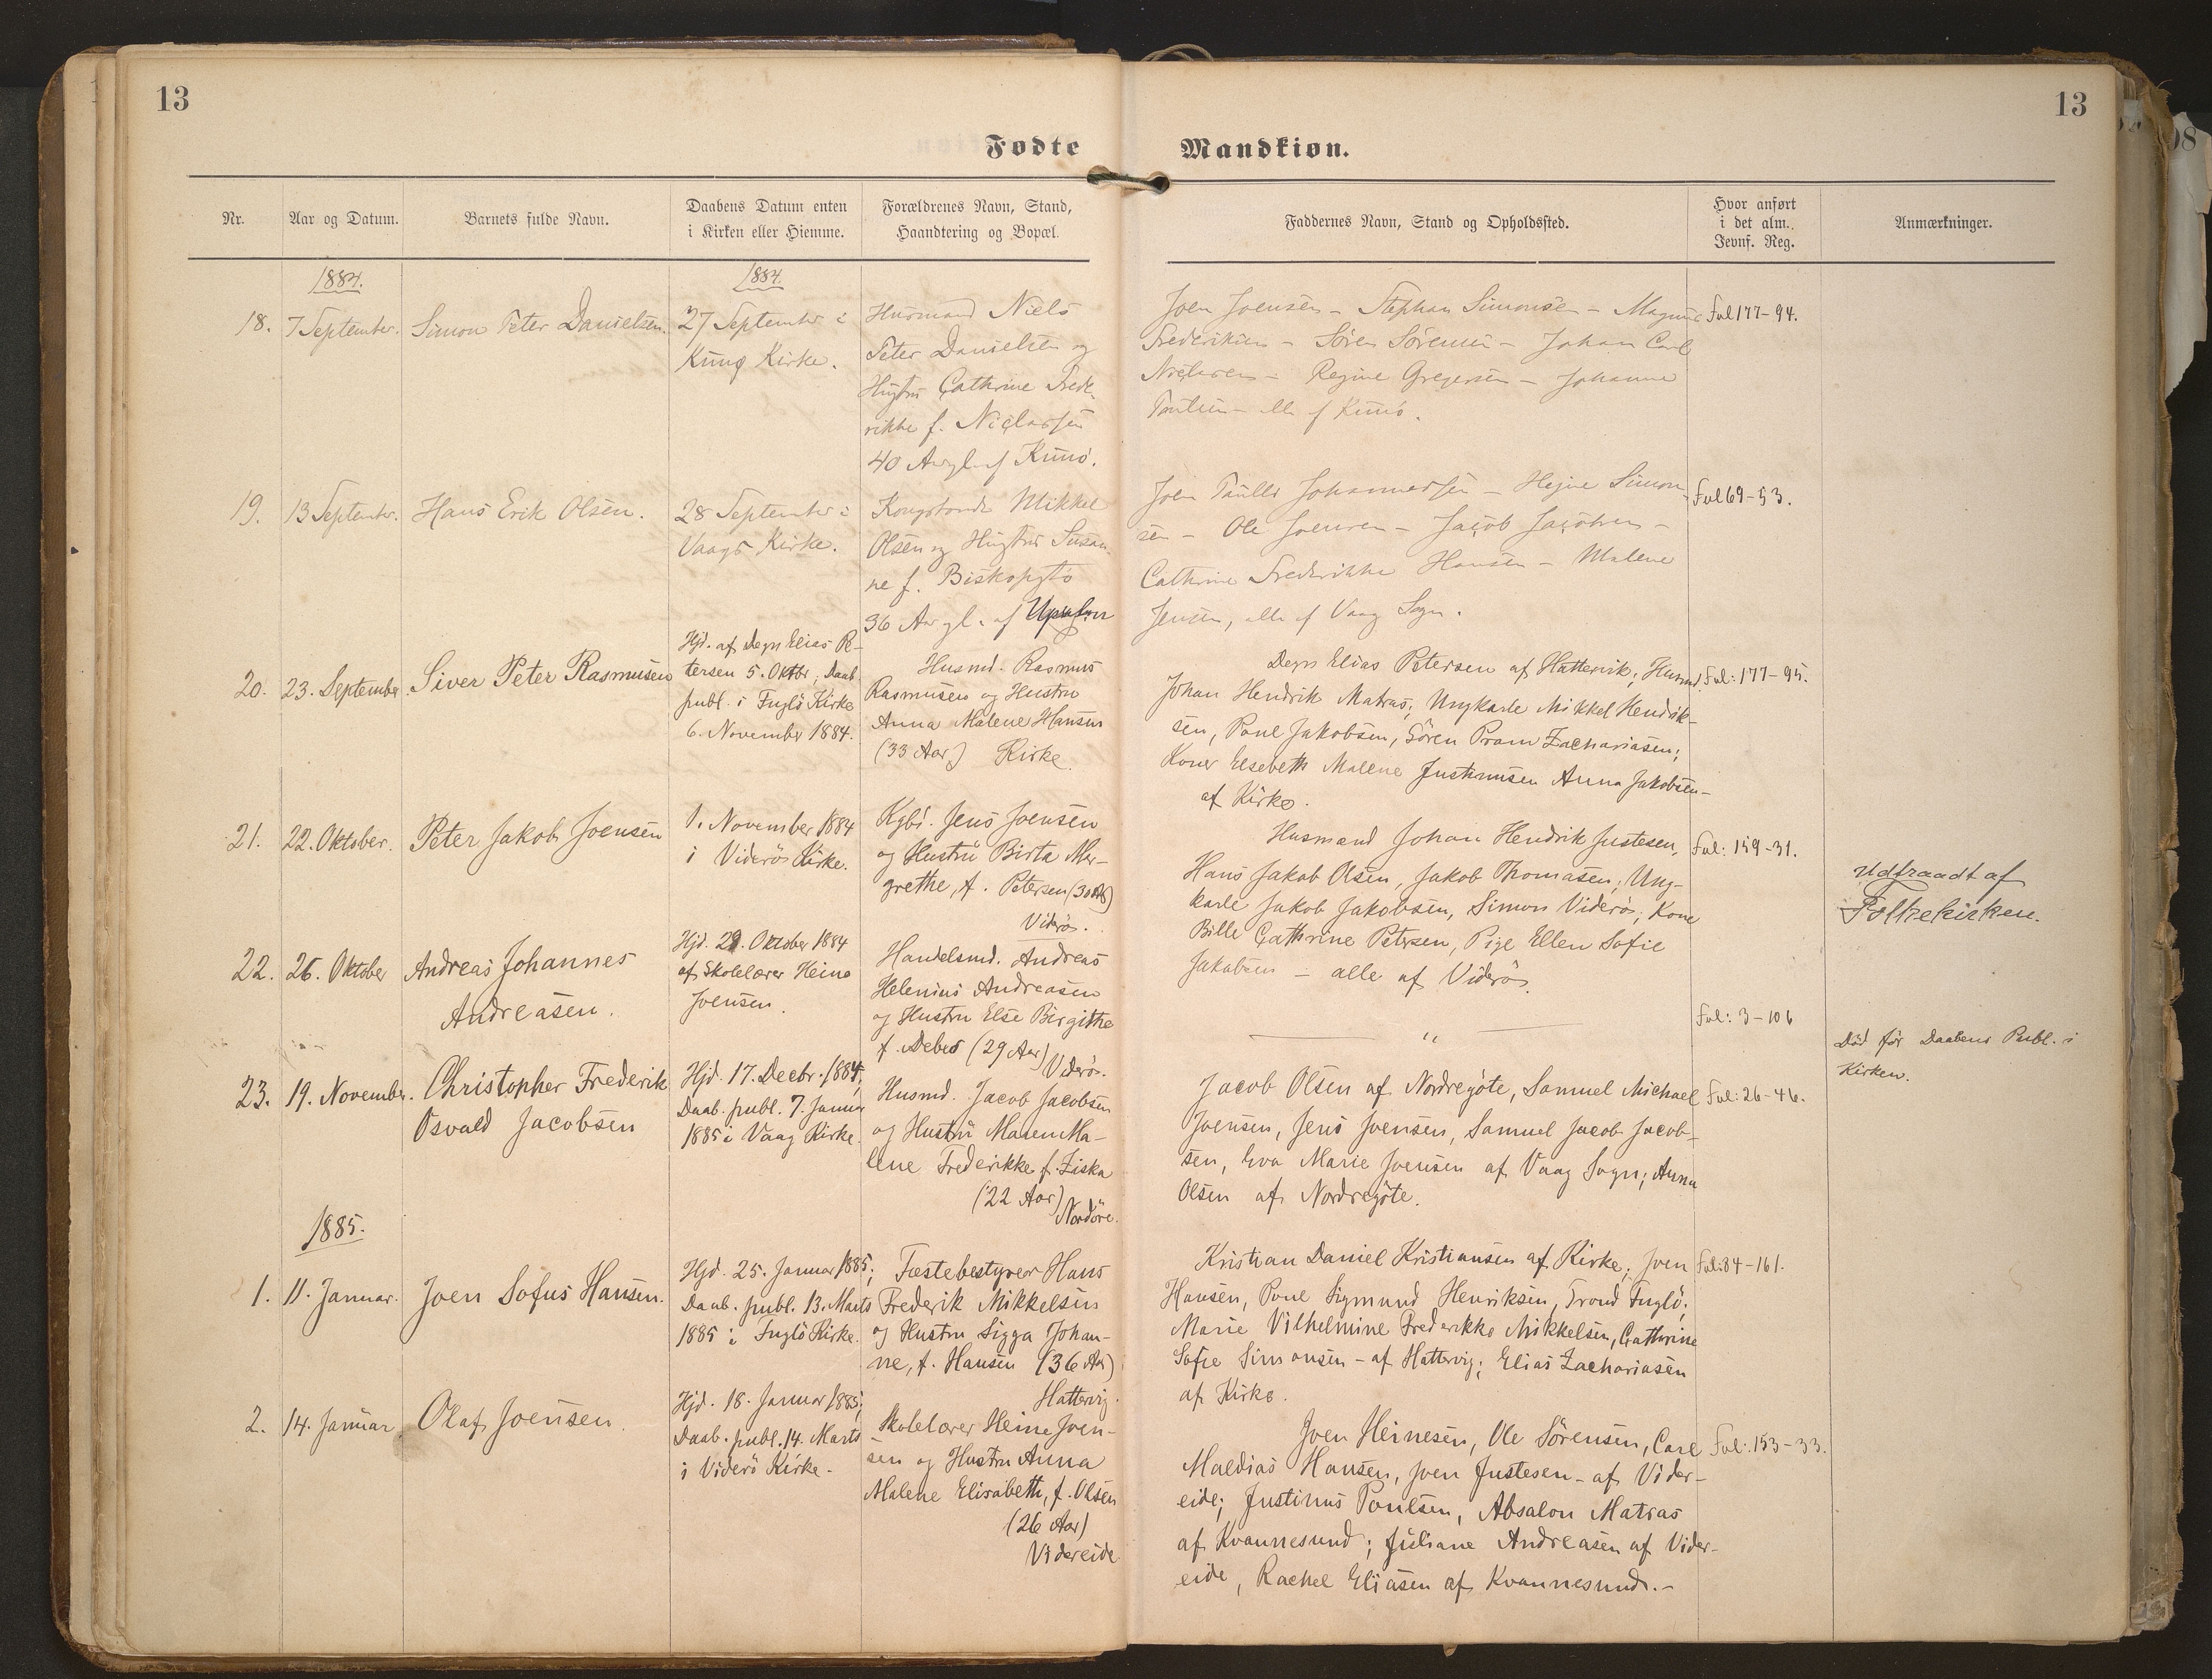 13
13
Fødte
Mandkiøn.
Nr.
Aar og Datum.
Barnets fulde Navn.
Daabens Datum enten
i Kirken eller Hiemme.
Forældrenes Navn, Stand,
Haandtering og Bopæl.
Faddernes Navn, Stand og Opholdssted.
Hvor anført
i det alm.
Jevnf. Reg.
Anmærkninger.
1884.
1884.
18.
7 September.
Simon Peter Danielsen.
27 September i
Kunø Kirke.
Husmand Niels
Peter Danielsen og
Hustru Cathrine Frede-
rikke f. Niclassen
40 Aar gl. af Kunø.
Joen Joensen - Stephan Simonsen - Magnus
Frederiksen - Søren Sørensen - Johan Carl
Niclasen - Regine Gregersen - Johanne
Poulsen - alle af Kunø.
Fol 177-94.
19.
13 September.
Hans Erik Olsen.
28 September i
Vaags Kirke.
Kongsbonde Mikkel
Olsen og Hustru Susan-
ne f. Biskopstø
36 Aar gl. af
Joen Poulli Johannessen - Hejne Simon-
sen - Ole Joensen - Jacob Jacobsen -
Cathrine Frederikke Hansen - Malene
Jensen, alle af Vaag Sogn.
Fol 69-53.
20.
23. September.
Siver Peter Rasmusen
Hjd. af Degn Elias Pe-
tersen 5. Oktbr; Daab.
publ. i Fuglö Kirke
6. November 1884.
Husmd. Rasmus
Rasmusen og Hustru
Anna Malene Hansen
(33 Aar) Kirke.
Degn Elias Petersen af Hattervik; Husmd.
Johan Hendrik Matras; Ungkarle Mikkel Hendrik-
sen, Poul Jakobsen, Sören Pram Zachariasen;
Koner Elsebeth Malene Justinusen Anna Jakobsen -
af Kirke.
Fol: 177-95.
21.
22. Oktober.
Peter Jakob Joensen
1. November 1884
i Viderös Kirke.
Kgb. Jens Joensen
og Hustru Birta Mar-
grethe, f. Petersen (30 Aar)
Viderö.
Husmand Johan Hendrik Justesen,
Hans Jakob Olsen, Jakob Thomasen; Ung-
karle Jakob Jakobsen, Simon Viderö; Kone
Bille Cathrine Petersen, Pige Ellen Sofie
Jakobsen - alle af Viderö.
Fol: 159-31.
Udtraadt af
Folkekirken.
22.
26. Oktober
Andreas Johannes
Andreasen.
Hjd. 29. Oktober 1884
af Skolelærer Heine
Joensen.
Handelsmd. Andreas
Helenius Andreasen
og Hustru Else Birgithe
f. Debes (29 Aar)
Viderö.
"
Fol: 3-106
Död för Daabens Publ. i
Kirken.
23.
19. November.
Christopher Frederik
Osvald Jacobsen
Hjd. 17. Decbr. 1884;
Daab. publ. 7. Januar
1885 i Vaag Kirke.
Husmd. Jacob Jacobsen
og Hustru Maren Ma-
lene Frederikke f. Ziska
(22 Aar)
Nordöre.
Jacob Olsen af Nordregöte, Samuel Michael
Joensen, Jens Joensen, Samuel Jacob Jacob-
sen, Eva Marie Joensen af Vaag Sogn; Anna
Olsen af Nordregöte.
Fol: 26-46.
1885.
1.
11. Januar.
Joen Sofus Hansen.
Hjd. 25. Januar 1885;
Daab. publ. 13. Marts
1885 i Fuglö Kirke.
Fæstebestyrer Hans
Frederik Mikkelsen
og Hustru Sigga Johan-
ne, f. Hansen (36 Aar)
Hattervig.
Kristian Daniel Kristiansen af Kirke; Joen
Hansen, Poul Sigmund Henriksen, Trond Fuglö;
Marie Vilhelmine Frederikke Mikkelsen, Cathrine
Sofie Simonsen - af Hattervig; Elias Zachariasen
af Kirke.
Fol: 84-161.
2.
14. Januar
Olaf Joensen.
Hjd. 18. Januar 1885;
Daab. publ. 14. Marts
i Viderö Kirke.
Skolelærer Heine Joen-
sen og Hustru Anna
Malene Elisabeth, f. Olsen
(26 Aar)
Videreide
Joen Heinesen, Ole Sörensen, Carl
Maldias Hansen, Joen Justesen - af Vider-
eide; Justinus Poulsen, Absalon Matras
af Kvannesund; Juliane Andreasen af Vider-
eide, Rachel Eliasen af Kvannesund. -
Fol: 153-33.